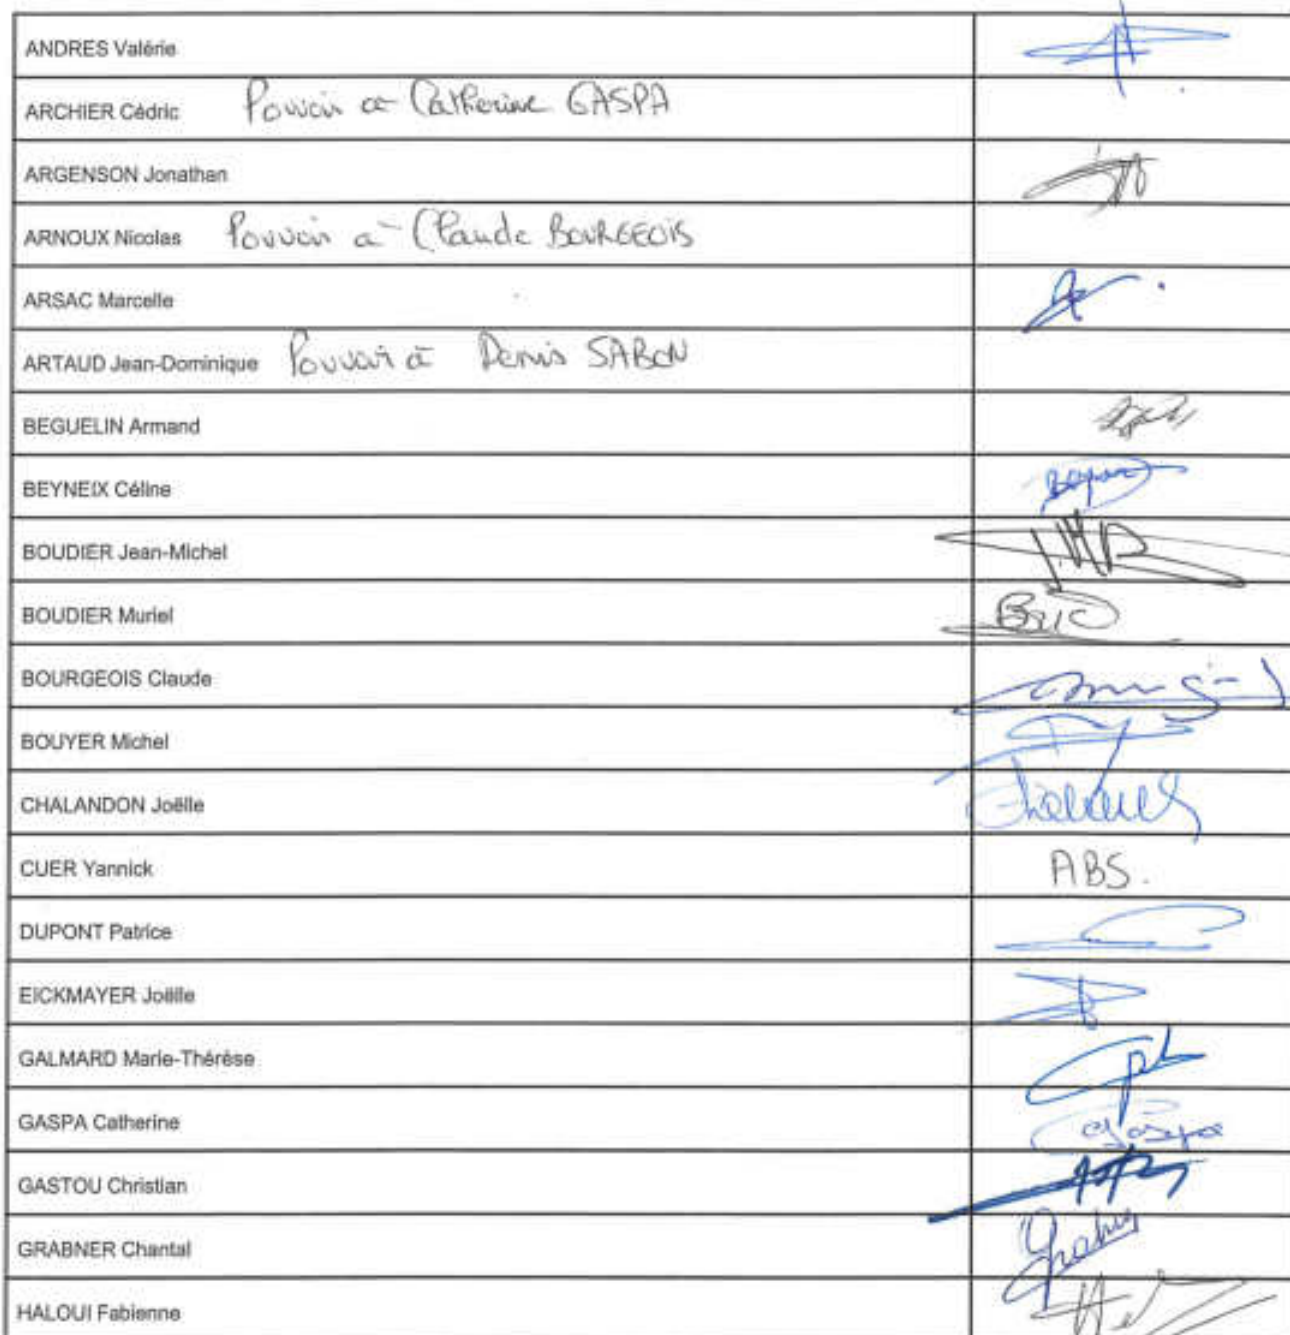 ANDRES Valérie
ARCHIER Cédric Pouvoir à Catherine GASPA
ARGENSON Jonathan
ARNOUX Nicolas Pouvoir à Claude BOURGEOIS
ARSAC Marcelle
ARTAUD Jean-Dominique Pouvoir à Denis SABON
BEGUELIN Armand
BEYNEIX Céline
BOUDIER Jean-Michel
BOUDIER Muriel
BOURGEOIS Claude
BOUYER Michel
CHALANDON Joëlle
CUER Yannick ABS.
DUPONT Patrice
EICKMAYER Joëlle
GALMARD Marie-Thérèse
GASPA Catherine
GASTOU Christian
GRABNER Chantal
HALOUI Fabienne